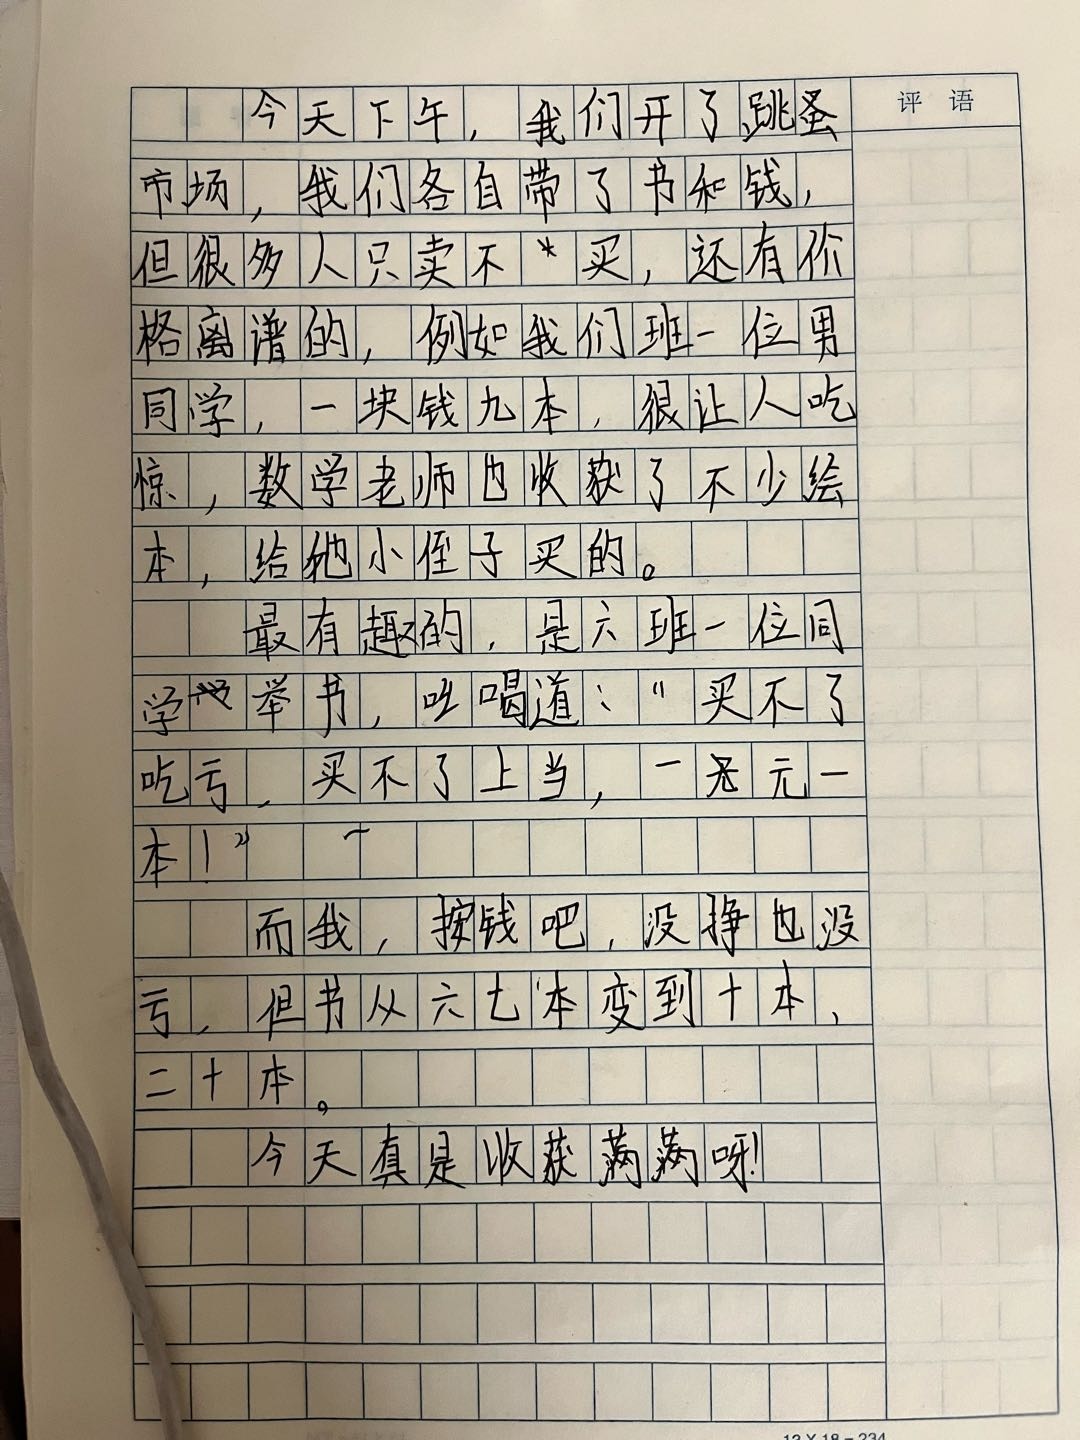 评 语
今天下午，我们开了跳蚤
市场，我们各自带了书和钱，
但很多人只卖不买，还有价
格离谱的，例如我们班一位男
同学，一块钱九本，很让人吃
惊，数学老师也收获了不少绘
本，给他小侄子买的。
最有趣的，是六班一位同
学举书，吆喝道：“买不了
吃亏，买不了上当，一元一
本！”
而我，按钱吧，没挣也没
亏，但书从六七本变到十本，
二十本。
今天真是收获满满呀！
13×18=234